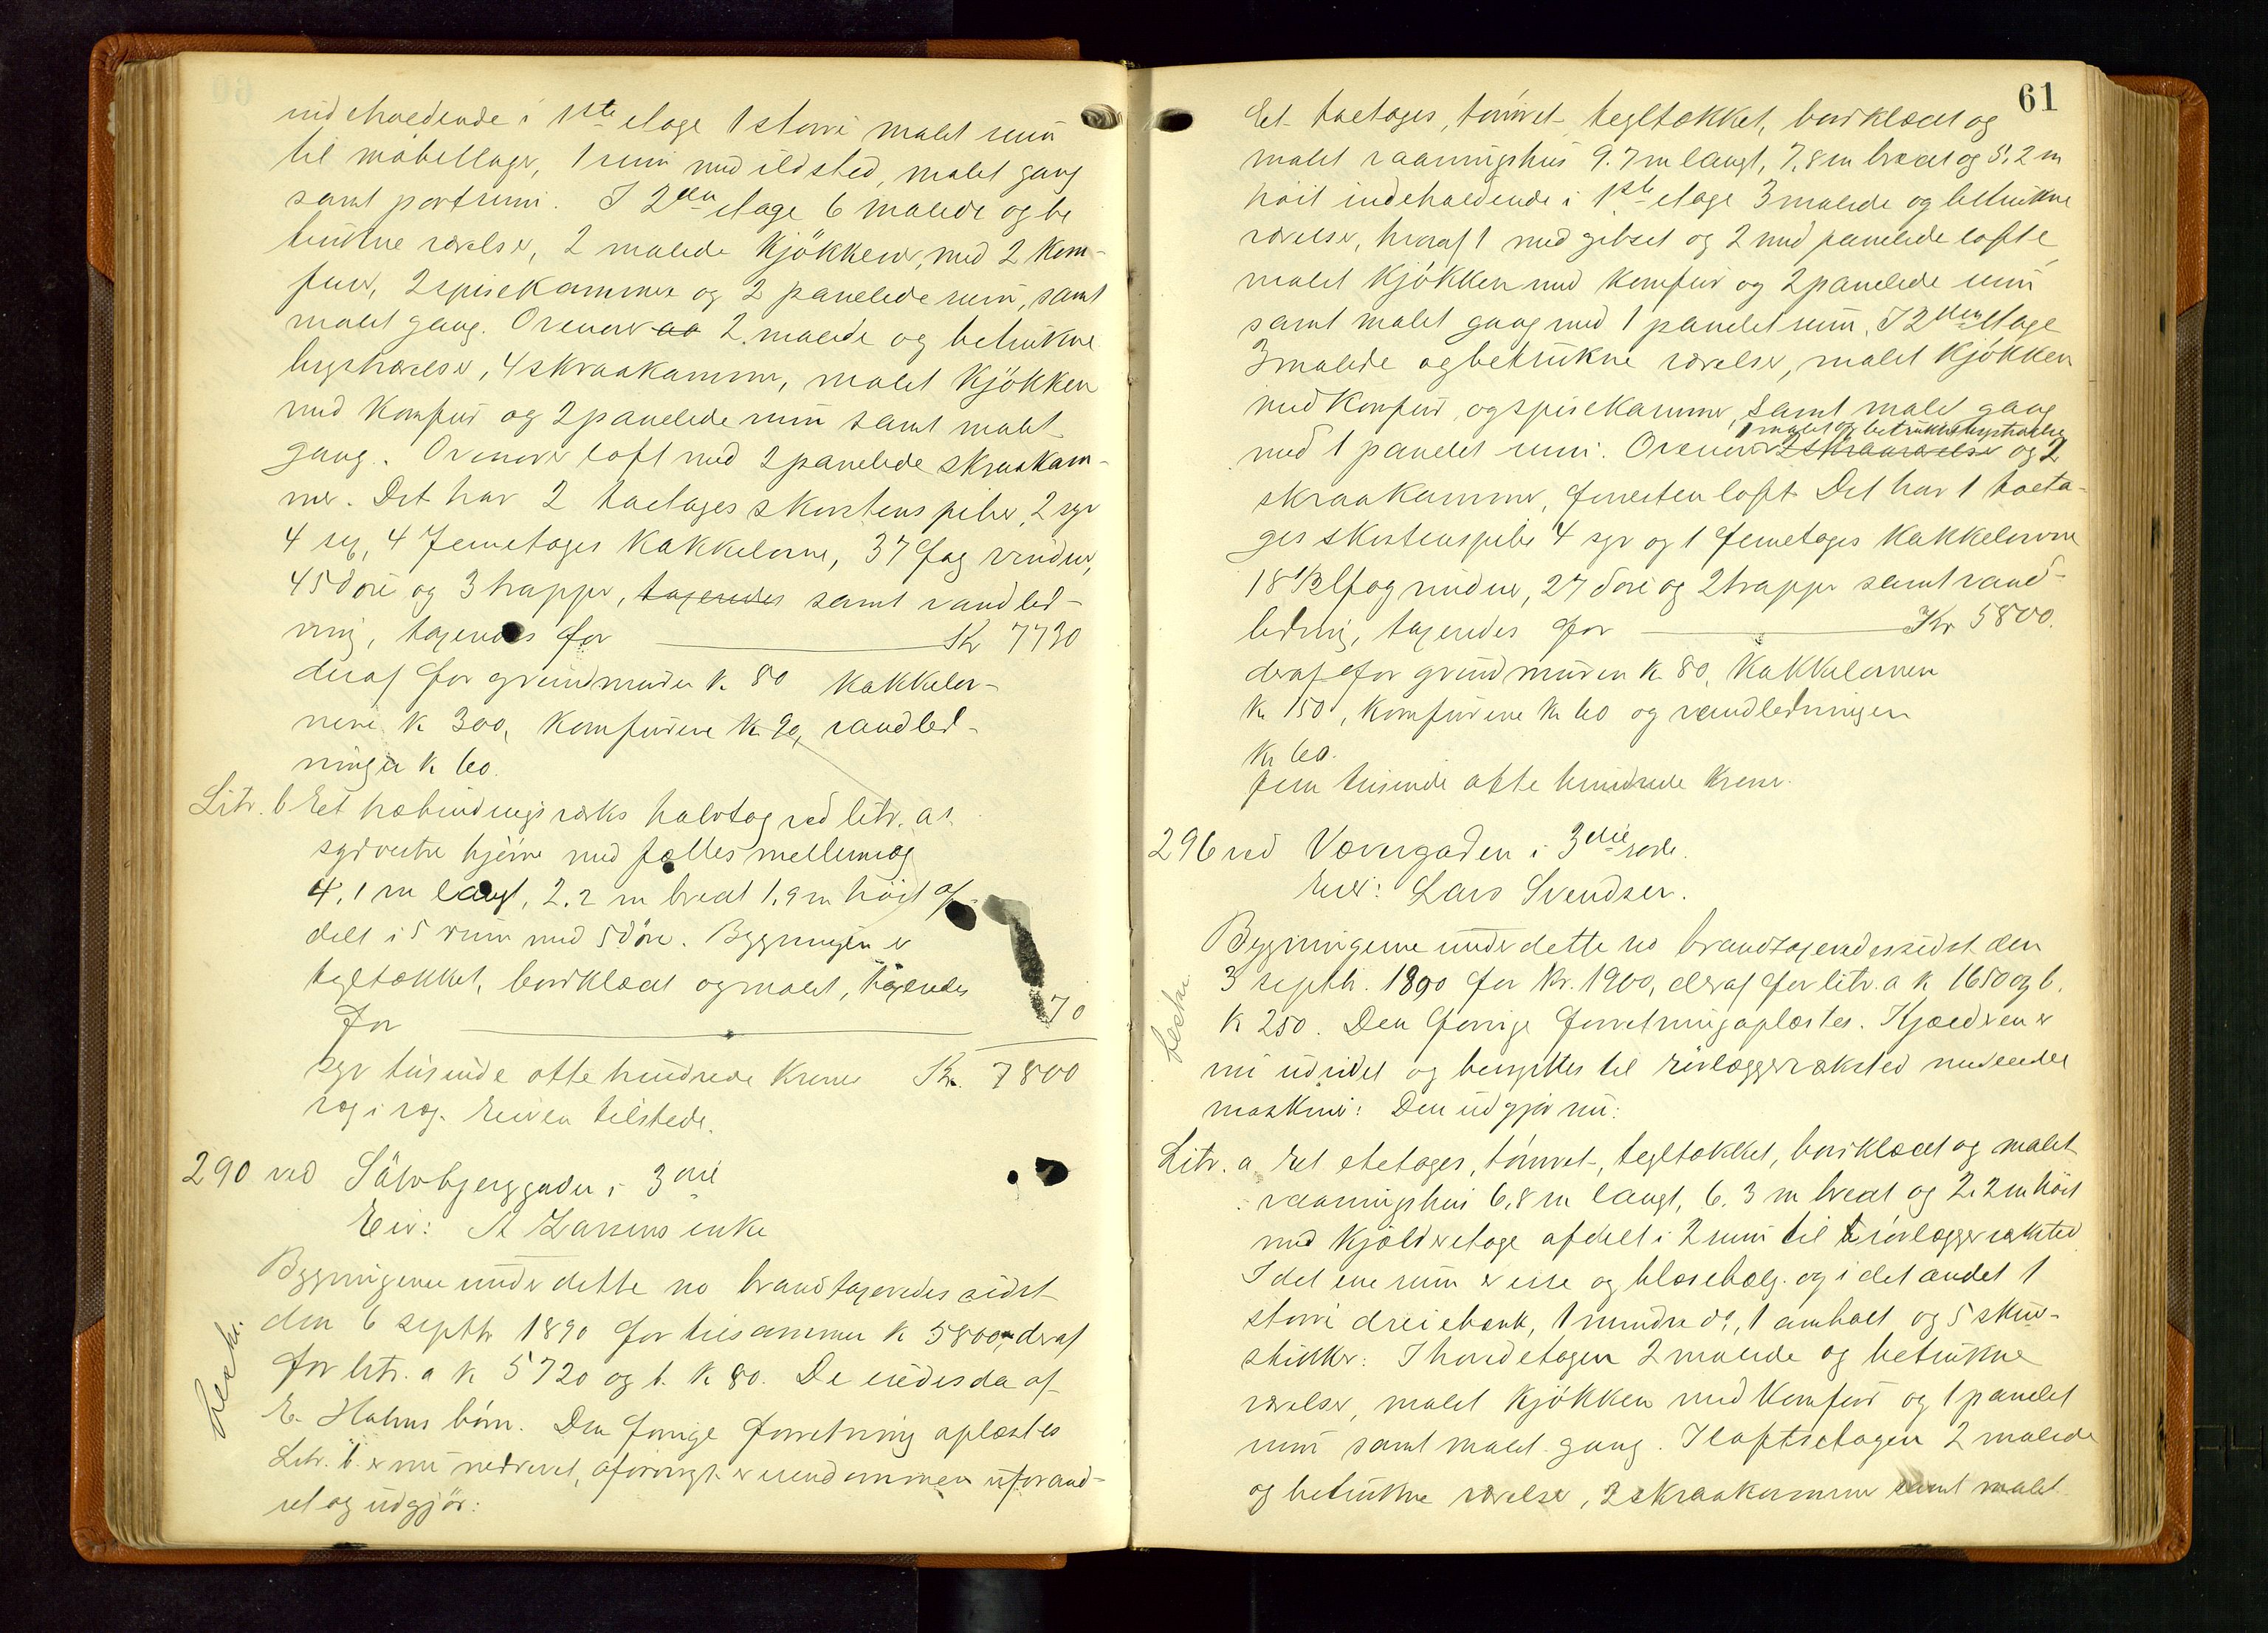 indeholdende i 1ste etage 1 större malet rum
til möbellager, 1 rum med ildsted, malet gang
samt portrum. I 2den etage 6 malede og be
trukne værelser, 2 malede kjökkener, med 2 kom-
furer, 2 spisekammer og 2 panelede rum, samt
malet gang. Ovenover 2 malede og betrukne
kvistværelser, 4 skraakammer, malet kjökken
med komfur og 2 panelede rum samt malet
gang. Ovenover loft med 2 panelede skraakam-
mer. Det har 2 toetages skorstenspiber, 2 syv
4 sex, 4 femetages kakkelovne, 37 fag vinduer,
45 döre og 3 trapper, taxeredes samt vandled-
ning, taxeredes for Kr 7730
deraf for grundmuren k. 80 kakkelov-
nene k 300, komfurene k. 90, vandled-
ningen k 60.
Litr. b Et udbindingsverks halvtag ved litr. a's
sydvestre hjörne med fælles mellemvæg
4,1 m langt, 2,2 m bredt 1,9 m höit af-
delt i 5 rum med 5 döre. Bygningen er
tegltækket, bordklædt og malet, taxeredes
for 70
syv tusinde otte hundrede kroner Kr. 7800
væg i væg. Eieren tilstede.
290 ved Sölvbjerggaden i 3die
Eier: A Larsens enke
Bygningerne under dette no brandtaxeredes sidst
den 6 septbr 1890 for tilsammen k 5800, deraf
for litr. a k 5720 og b. k 80. De eiedes da af
E. Hahns börn. Den forrige forretning oplæstes
Litr. b. er nu nedrevet, aforövrigt er eiendommen uforand-
ret og udgjör:
beskr.
61
Et toetages, tömret tegltækket, bordklædt og
malet vaaningshus 9.7 m langt, 7,8 m bredt og 5,2 m
höit indeholdende i 1ste etage 3 malede og betrukne
værelser, hvoraf 1 med gibset og 2 med panelede lofte
malet kjökken med komfur og 2 panelede rum
samt malet gang med 1 panelet rum. I 2den etage
3 malede og betrukne værelser, malet kjökken
med komfur og spisekammer, samt malet gang
1 malet og betrukket kvistværelse
med 1 panelet rum. Ovenover 2 skraaværelser og 2
skraakammer, forresten loft. Det har 1 toeta-
ges skorstenspibe 4 syv og 1 femetages kakkelovne
18 1/2 fag vinduer, 27 döre og 2 trapper samt vand-
ledning, taxeredes for Kr 5800.
deraf for grundmuren k. 80, kakkelovnene
k. 150, komfurene kr 60 og vandledningen
kr 60.
fem tusinde otte hundrede kroner.
296 ved Vævergaden i 3die rode.
Eier: Lars Svendsen.
Bygningerne under dette no brandtaxeredes sidst den
3 septbr. 1890 for kr. 1900, deraf for litr. a k 1650 og b.
k 250. Den forrige forretning oplæstes. Kjælderen er
nu udvidet og benyttes til rörlæggerværksted
maskiner: Den udgjör nu:
beskr.
Litr. a Et etetages, tömret, tegltækket, bordklædt og malet
vaaningshus 6,8 m langt, 6,3 m bredt og 2,2 m höit
med kjælderetage afdelt i 2 rum til rörlæggerværksted
I det ene rum er esse og blæsebælg og i det andet 1
större dreiebænk, 1 mindre do, 1 ambolt og 5 skrue-
stikker. I hovedetagen 2 malede og betrukne
værelser, malet kjökken med komfur og 1 panelet
rum samt malet gang. I loftsetagen 2 malede
og betrukne værelser, 2 skraakammer samt malet